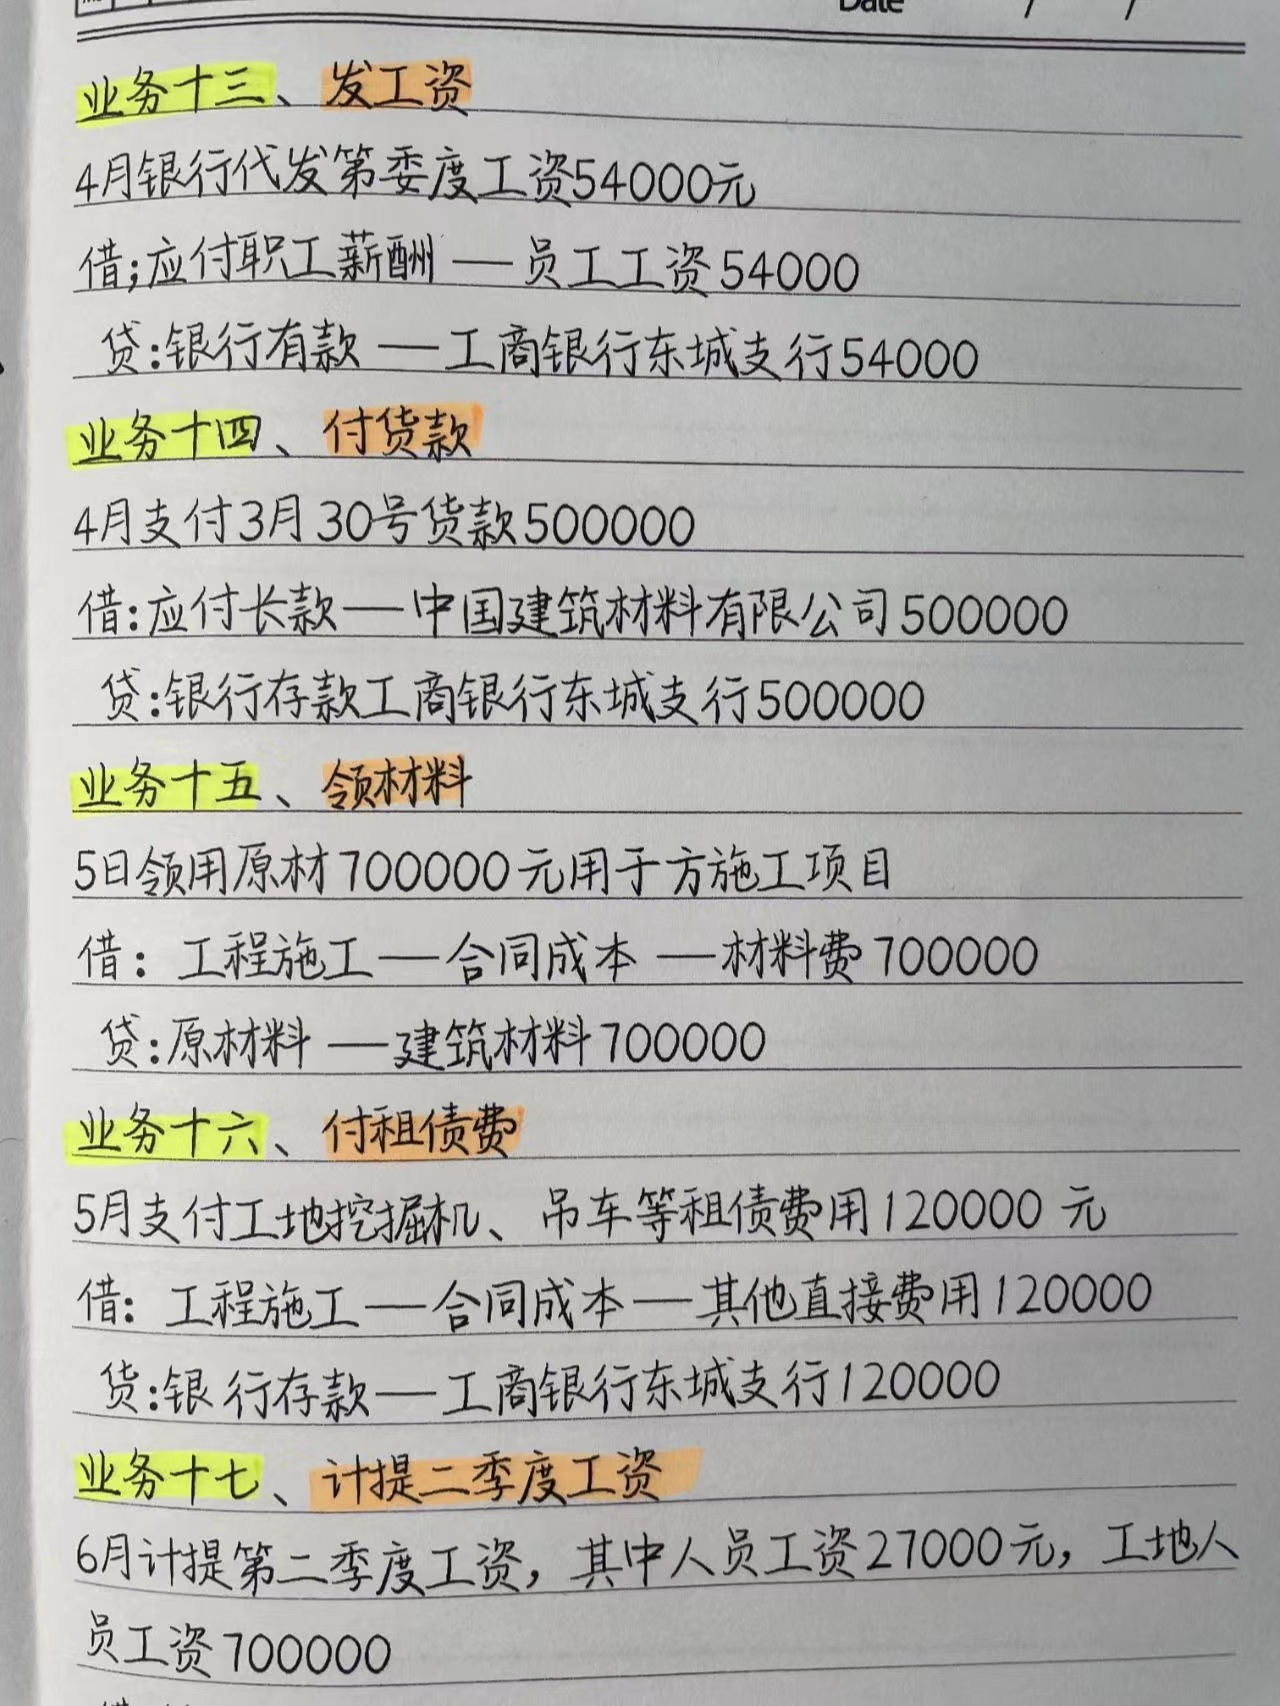 Date / /
业务十三、发工资
4月银行代发第委度工资54000元
借;应付职工薪酬——员工工资54000
贷:银行有款——工商银行东城支行54000
业务十四、付货款
4月支付3月30号货款500000
借:应付长款——中国建筑材料有限公司500000
贷:银行存款工商银行东城支行500000
业务十五、领材料
5日领用原材700000元用于方施工项目
借:工程施工——合同成本——材料费700000
贷:原材料——建筑材料700000
业务十六、付租债费
5月支付工地挖掘机、吊车等租债费用120000元
借:工程施工——合同成本——其他直接费用120000
货:银行存款——工商银行东城支行120000
业务十七、计提二季度工资
6月计提第二季度工资,其中人员工资27000元,工地人
员工资700000